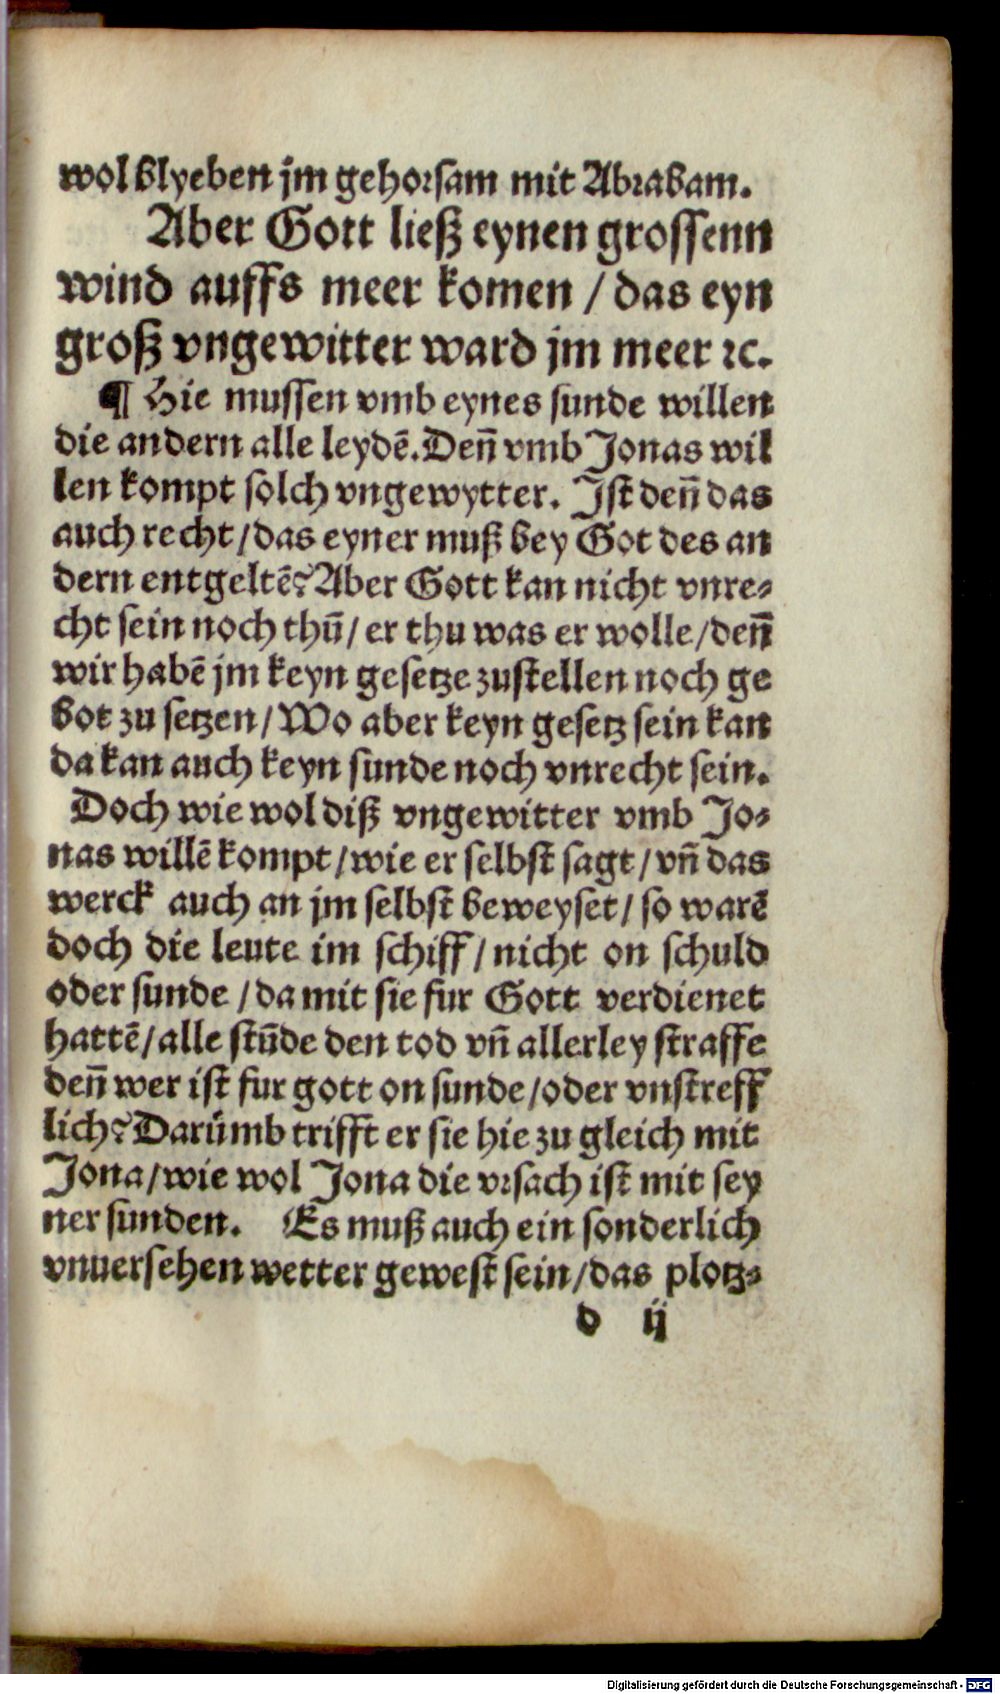 wol blyeben jm gehorsam mit Abraham.
Aber Gott ließ eynen grossenn
wind auffs meer komen / das eyn
groß vngewitter ward jm meer ⁊c.
¶ Hie mussen vmb eynes sunde willen
die andern alle leydē. Den̄ vmb Jonas wil
len kompt solch vngewytter. Jst den̄ das
auch recht / das eyner muß bey Got des an
dern entgeltē? Aber Gott kan nicht vnre⸗
cht sein noch thū / er thu was er wolle / den̄
wir habē jm keyn gesetze zustellen noch ge
bot zu setzen / Wo aber keyn gesetz sein kan
da kan auch keyn sunde noch vnrecht sein.
Doch wie wol diß vngewitter vmb Jo⸗
nas willē kompt / wie er selbst sagt / vn̄ das
werck auch an jm selbst beweyset / so warē
doch die leute im schiff / nicht on schuld
oder sunde / da mit sie fur Gott verdienet
hattē / alle stūde den tod vn̄ allerley straffe
den̄ wer ist fur gott on sunde / oder vnstreff
lich? Darümb trifft er sie hie zu gleich mit
Jona / wie wol Jona die vrsach ist mit sey
ner sunden. Es muß auch ein sonderlich
vnuersehen wetter gewest sein / das plotz⸗
d ij
Digitalisierung gefördert durch die Deutsche Forschungsgemeinschaft - DFG